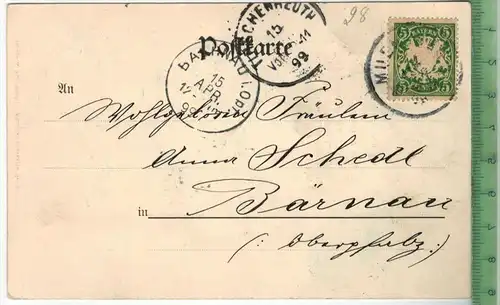 98
Postkarte
TIRSCHENREUTH
15
VORM
99
BAERNAU
15
APR
BAYERN
5 5
5 5
MUE
An
Wohlgeboren Fräulein
Anna Schedl
in Bärnau
(: Oberpfalz :)